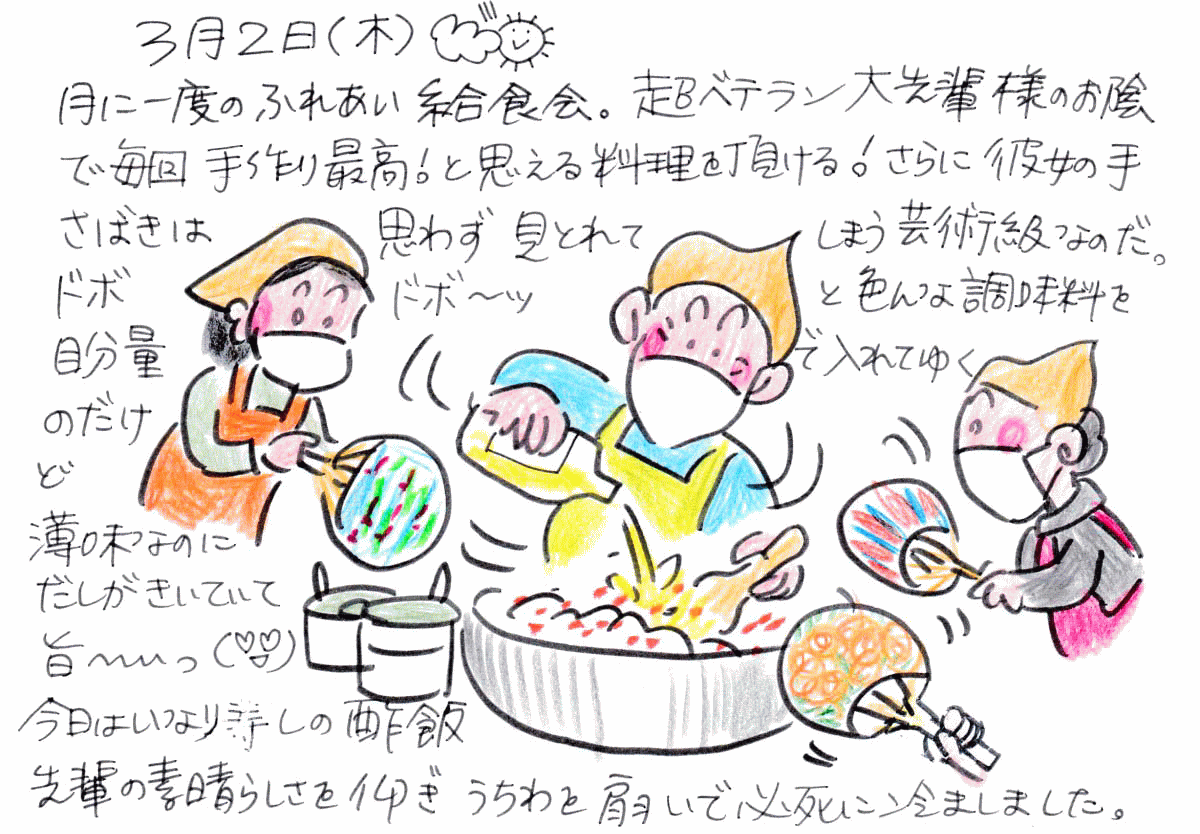 3月2日(木)
月に一度のふれあい給食会。超ベテラン大先輩様のお陰
で毎回手作り最高!と思える料理を頂ける!さらに彼女の手
さばきは思わず見とれてしまう芸術級なのだ。
ドボドボ〜ッと色んな調味料を
自分量で入れてゆく
のだけ
ど
薄味なのに
だしがきいていて
旨〜いっ(♡▽♡)
今日はいなり寿しの酢飯
先輩の素晴らしさを仰ぎうちわを扇いで必死に冷ましました。